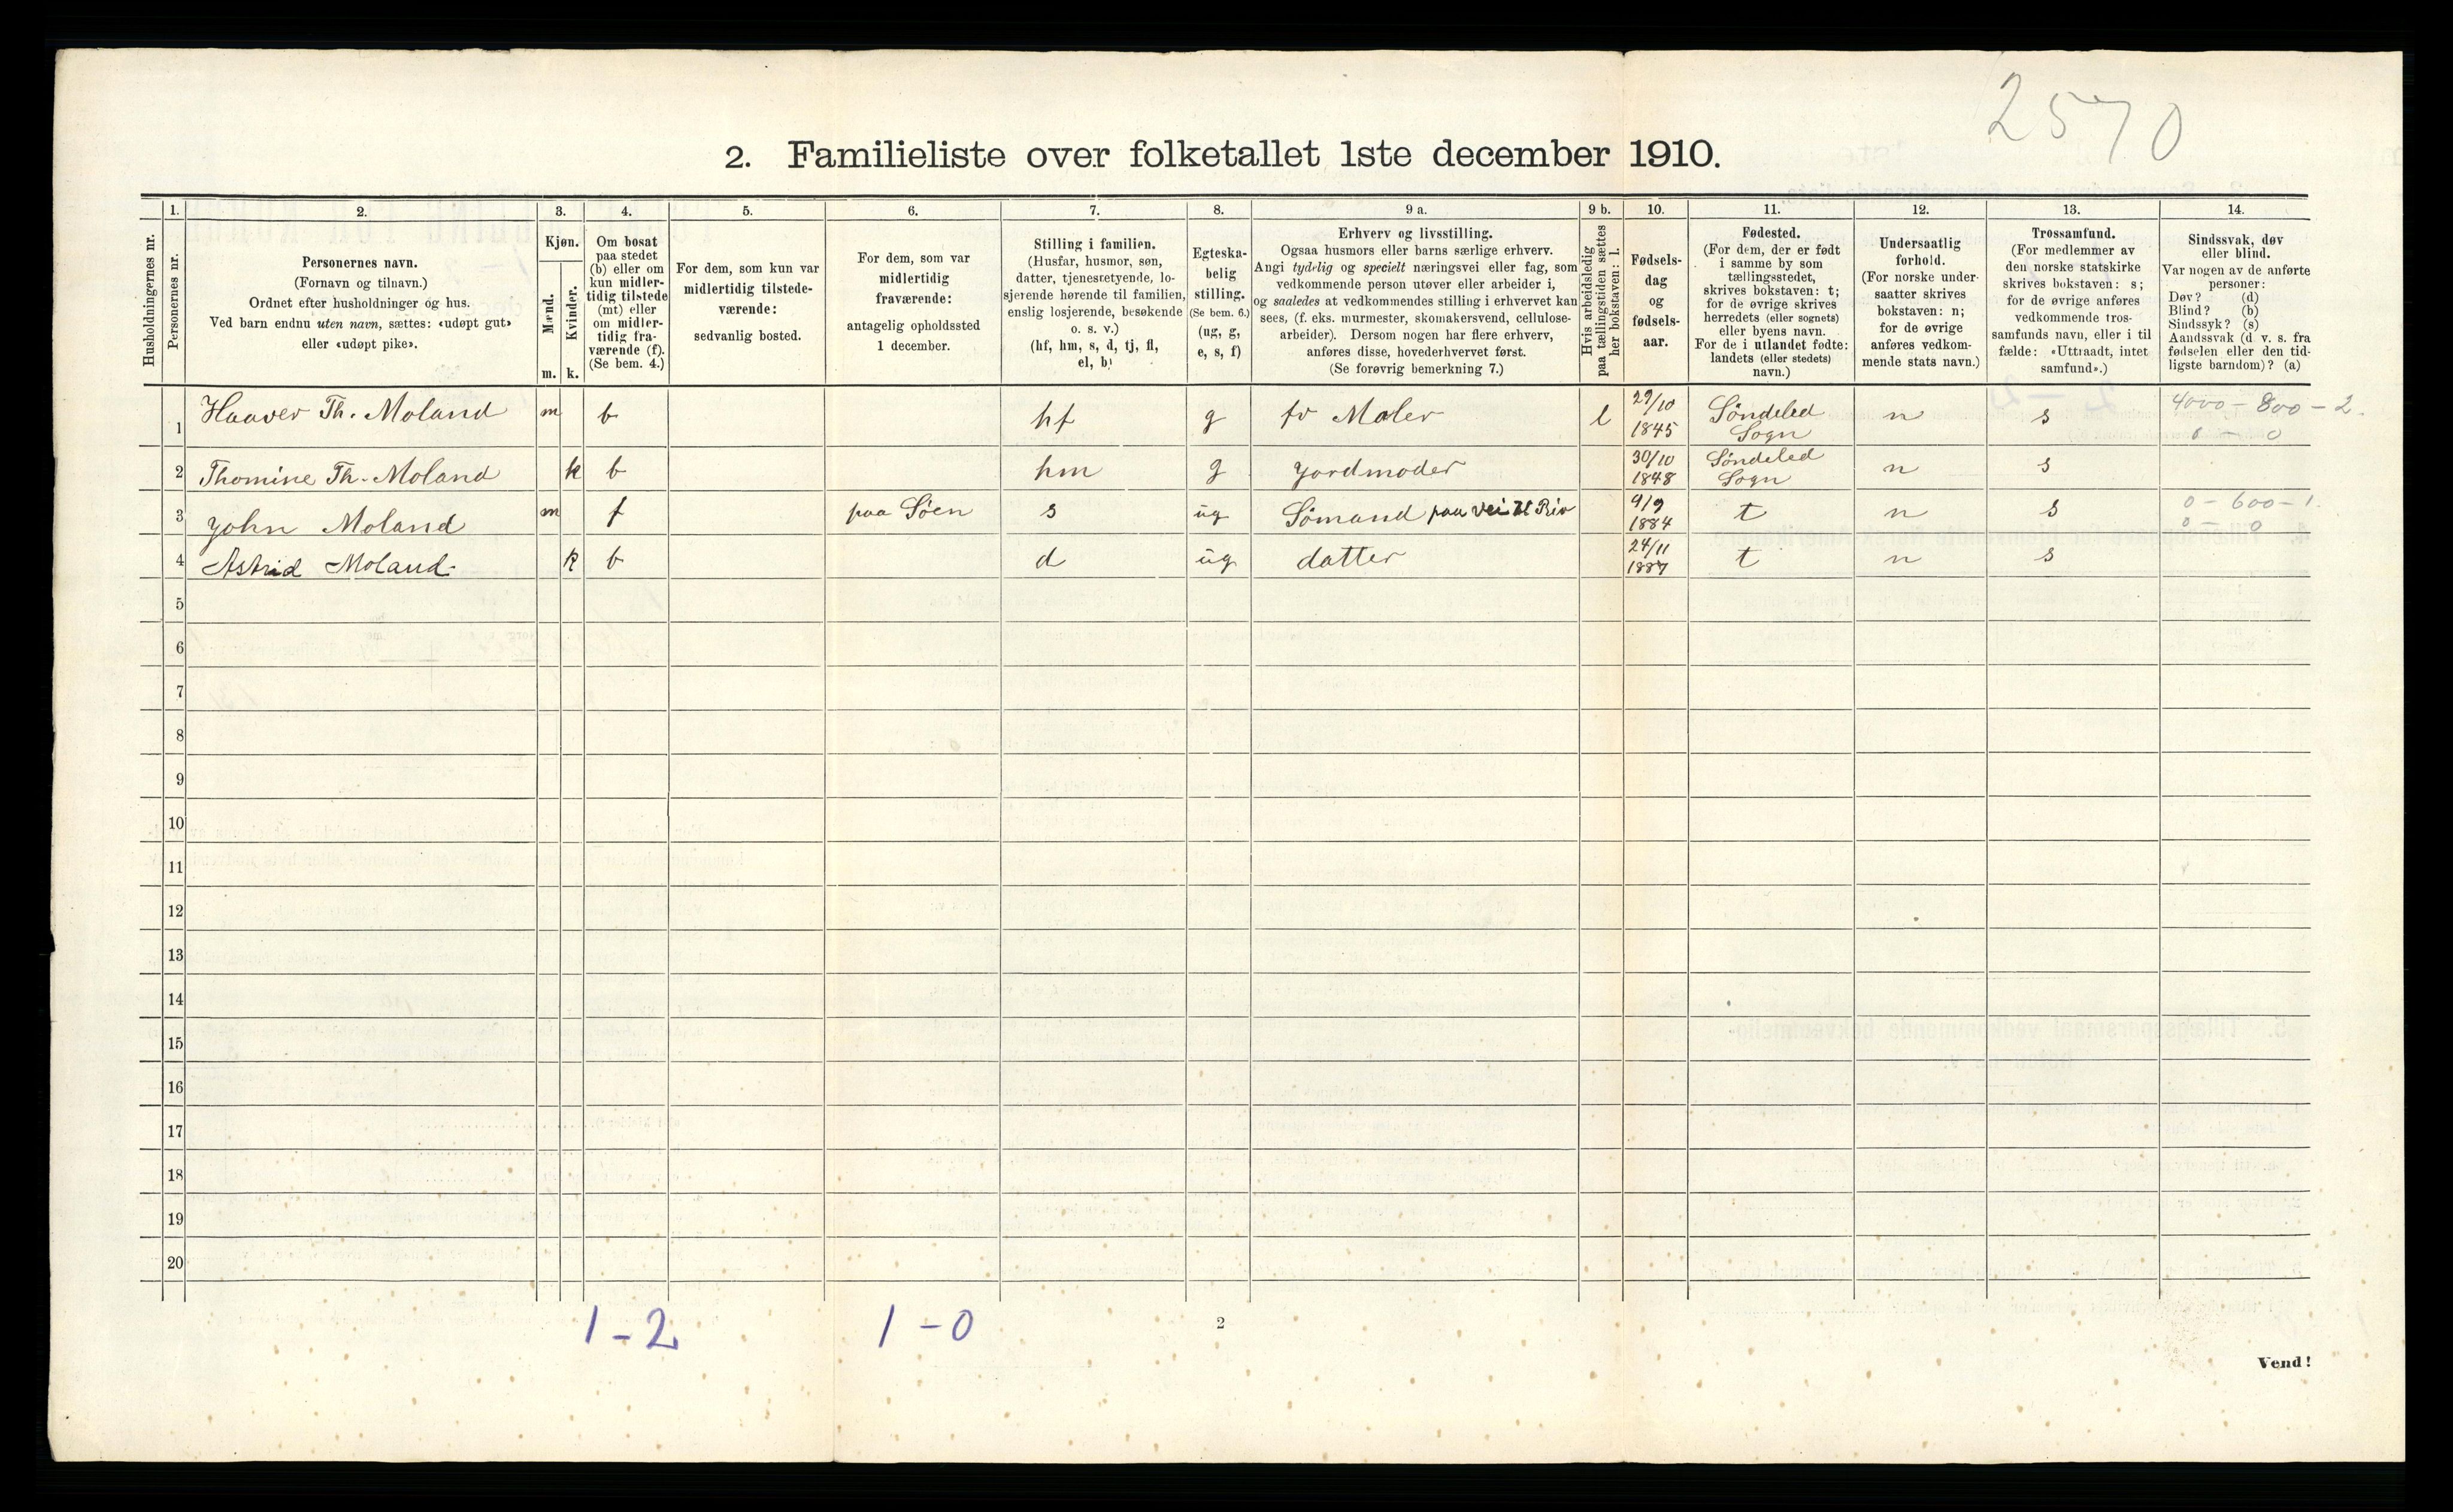 2570
2. Familieliste over folketallet 1ste december 1910.
Husholdningernes nr.
1.
Personernes nr.
2.
Personernes navn.
(Fornavn og tilnavn.)
Ordnet efter husholdninger og hus.
Ved barn endnu uten navn, sættes: «udøpt gut»
eller «udøpt pike».
3.
Kjøn.
Mænd.
m.
Kvinder.
k.
4.
Om bosat
paa stedet
(b) eller om
kun midler-
tidig tilstede
(mt) eller
om midler-
tidig fra-
værende (f).
(Se bem. 4.)
5.
For dem, som kun var
midlertidig tilstede-
værende:
sedvanlig bosted.
6.
For dem, som var
midlertidig
fraværende:
antagelig opholdssted
1 december.
7.
Stilling i familien.
(Husfar, husmor, søn,
datter, tjenestetyende, lo-
sjerende hørende til familien,
enslig losjerende, besøkende
o. s. v.)
(hf, hm, s, d, tj, fl,
el, b)
8.
Egteska-
belig
stilling.
(Se bem. 6.)
(ug, g,
e, s, f)
9 a.
Erhverv og livsstilling.
Ogsaa husmors eller barns særlige erhverv.
Angi tydelig og specielt næringsvei eller fag, som
vedkommende person utøver eller arbeider i,
og saaledes at vedkommendes stilling i erhvervet kan
sees, (f. eks. murmester, skomakersvend, cellulose-
arbeider). Dersom nogen har flere erhverv,
anføres disse, hovederhvervet først.
(Se forøvrig bemerkning 7.)
9 b.
Hvis arbeidsledig
paa tællingstiden sættes
her bokstaven: l.
10.
Fødsels-
dag
og
fødsels-
aar.
11.
Fødested.
(For dem, der er født
i samme by som
tællingsstedet,
skrives bokstaven: t;
for de øvrige skrives
herredets (eller sognets)
eller byens navn.
For de i utlandet fødte:
landets (eller stedets)
navn.)
12.
Undersaatlig
forhold.
(For norske under-
saatter skrives
bokstaven: n;
for de øvrige
anføres vedkom-
mende stats navn.)
13.
Trossamfund.
(For medlemmer av
den norske statskirke
skrives bokstaven: s;
for de øvrige anføres
vedkommende tros-
samfunds navn, eller i til
fælde: «Uttraadt, intet
samfund».)
14.
Sindssvak, døv
eller blind.
Var nogen av de anførte
personer:
Døv? (d)
Blind? (b)
Sindssyk? (s)
Aandssvak (d v. s. fra
fødselen eller den tid-
ligste barndom)? (a)
1 Haaver Th. Moland m b hf g fv Maler l 29/10 1845 Söndeled Sogn n s 4000 - 800 - 2. 0 - 0
2 Thomine Th. Moland k b hm g Jordmoder 30/10 1848 Söndeled Sogn n s
3 John Moland m f paa Söen s ug Sömand paa vei til Rio 9/9 1884 t n s 0 - 600 - 1. 0 - 0
4 Astrid Moland k b d ug datter 24/11 1887 t n s
5
6
7
8
9
10
11
12
13
14
15
16
17
18
19
20
1 - 2 1 - 0
2
Vend!